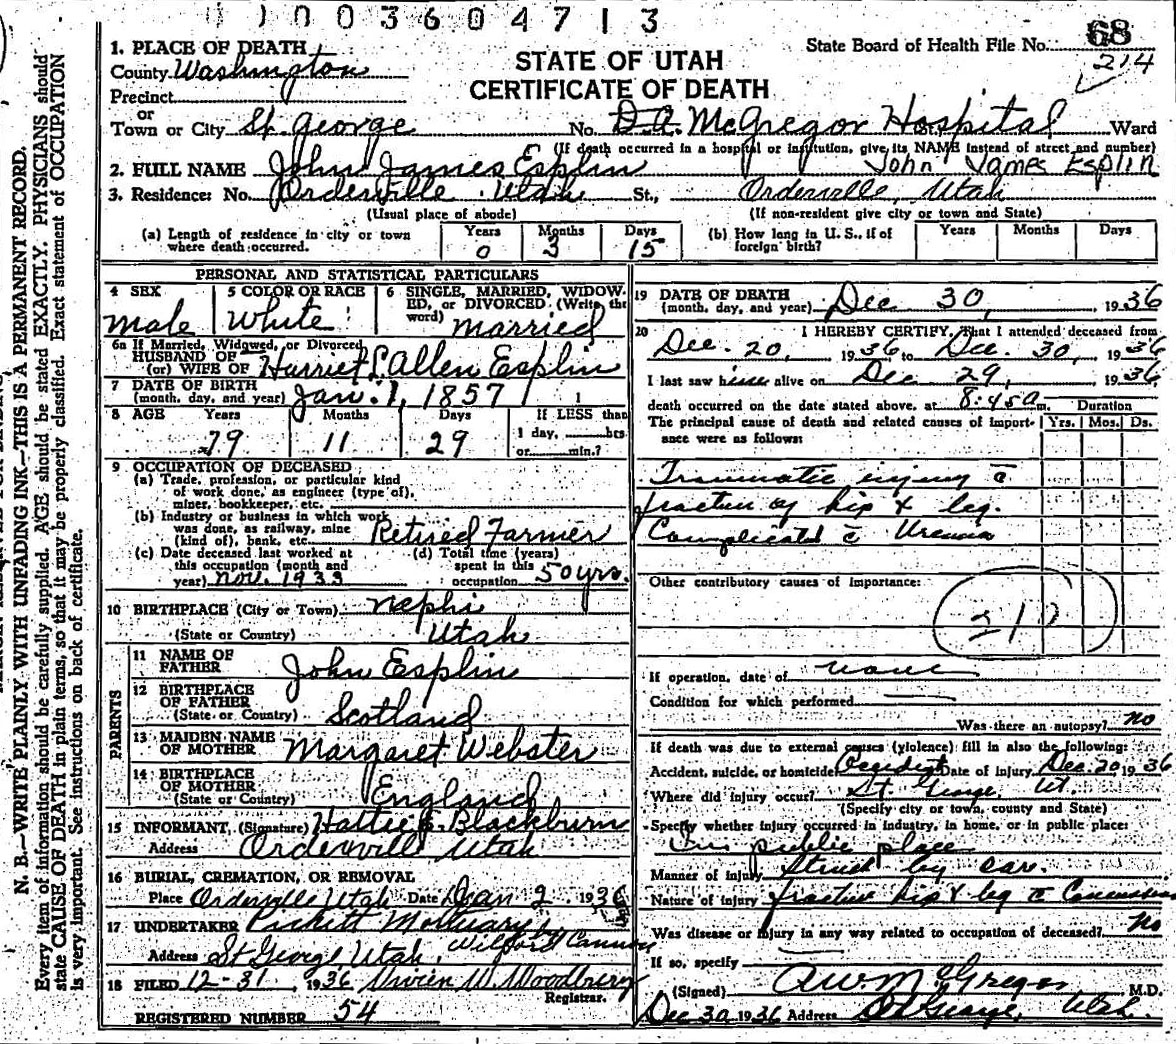 1003604713
STATE OF UTAH
CERTIFICATE OF DEATH
State Board of Health File No. 68
214
1. PLACE OF DEATH
County Washington
Precinct
or
Town or City St. George No. D.A. McGregor Hospital St., Ward
(If death occurred in a hospital or institution, give its NAME instead of street and number)
2. FULL NAME John James Esplin John James Esplin
3. Residence: No. Orderville Utah St., Orderville, Utah
(Usual place of abode) (If non-resident give city or town and State)
(a) Length of residence in city or town where death occurred. Years 0 Months 3 Days 15
(b) How long in U. S., if of foreign birth? Years Months Days
PERSONAL AND STATISTICAL PARTICULARS
4 SEX Male
5 COLOR OR RACE White
6 SINGLE, MARRIED, WIDOWED, or DIVORCED. (Write the word) married
6a If Married, Widowed, or Divorced
HUSBAND OF
(or) WIFE OF Harriet L. Allen Esplin
7 DATE OF BIRTH
(month, day, and year) Jan. 1, 1857
8 AGE Years 79 Months 11 Days 29 If LESS than
1 day, hrs.
or min.?
9 OCCUPATION OF DECEASED
(a) Trade, profession, or particular kind
of work done, as engineer (type of),
miner, bookkeeper, etc.
(b) Industry or business in which work
was done, as railway, mine
(kind of), bank, etc. Retired Farmer
(c) Date deceased last worked at
this occupation (month and
year) Nov. 1933
(d) Total time (years)
spent in this
occupation 50 yrs.
10 BIRTHPLACE (City or Town) Nephi
(State or Country) Utah
PARENTS
11 NAME OF
FATHER John Esplin
12 BIRTHPLACE
OF FATHER
(State or Country) Scotland
13 MAIDEN NAME
OF MOTHER Margaret Webster
14 BIRTHPLACE
OF MOTHER
(State or Country) England
15 INFORMANT, (Signature) Hattie E. Blackburn
Address Orderville Utah
16 BURIAL, CREMATION, OR REMOVAL
Place Orderville Utah Date Jan 2 1936
17 UNDERTAKER Pickett Mortuary by
Wilford Cannon
Address St George Utah.
18 FILED 12-31, 1936 Vivien W. Woodbury
Registrar.
REGISTERED NUMBER 54
19 DATE OF DEATH
(month, day, and year) Dec 30, 1936
20 I HEREBY CERTIFY, That I attended deceased from
Dec. 20, 1936 to Dec. 30, 1936
I last saw him alive on Dec 29, 1936
death occurred on the date stated above, at 8:45 a m. Duration
The principal cause of death and related causes of importance were as follows: Yrs. Mos. Ds.
Traumatic injury c̄
fracture of hip & leg.
Complicated c̄ Uremia
Other contributory causes of importance:
210
If operation, date of none
Condition for which performed
Was there an autopsy? no
If death was due to external causes (violence) fill in also the following:
Accident, suicide, or homicide Accident Date of injury Dec. 20 1936
Where did injury occur? St. George, Ut.
(Specify city or town, county and State)
Specify whether injury occurred in industry, in home, or in public place:
In public place
Manner of injury Struck by car.
Nature of injury fracture hip & leg c̄ Concussion
Was disease or injury in any way related to occupation of deceased? no
If so, specify
(Signed) A.W. McGregor M.D.
Dec 30 1936 Address St George, Utah.
N. B.—WRITE PLAINLY WITH UNFADING INK—THIS IS A PERMANENT RECORD.
Every item of information should be carefully supplied. AGE should be stated EXACTLY. PHYSICIANS should
state CAUSE OF DEATH in plain terms, so that it may be properly classified. Exact statement of OCCUPATION
is very important. See instructions on back of certificate.